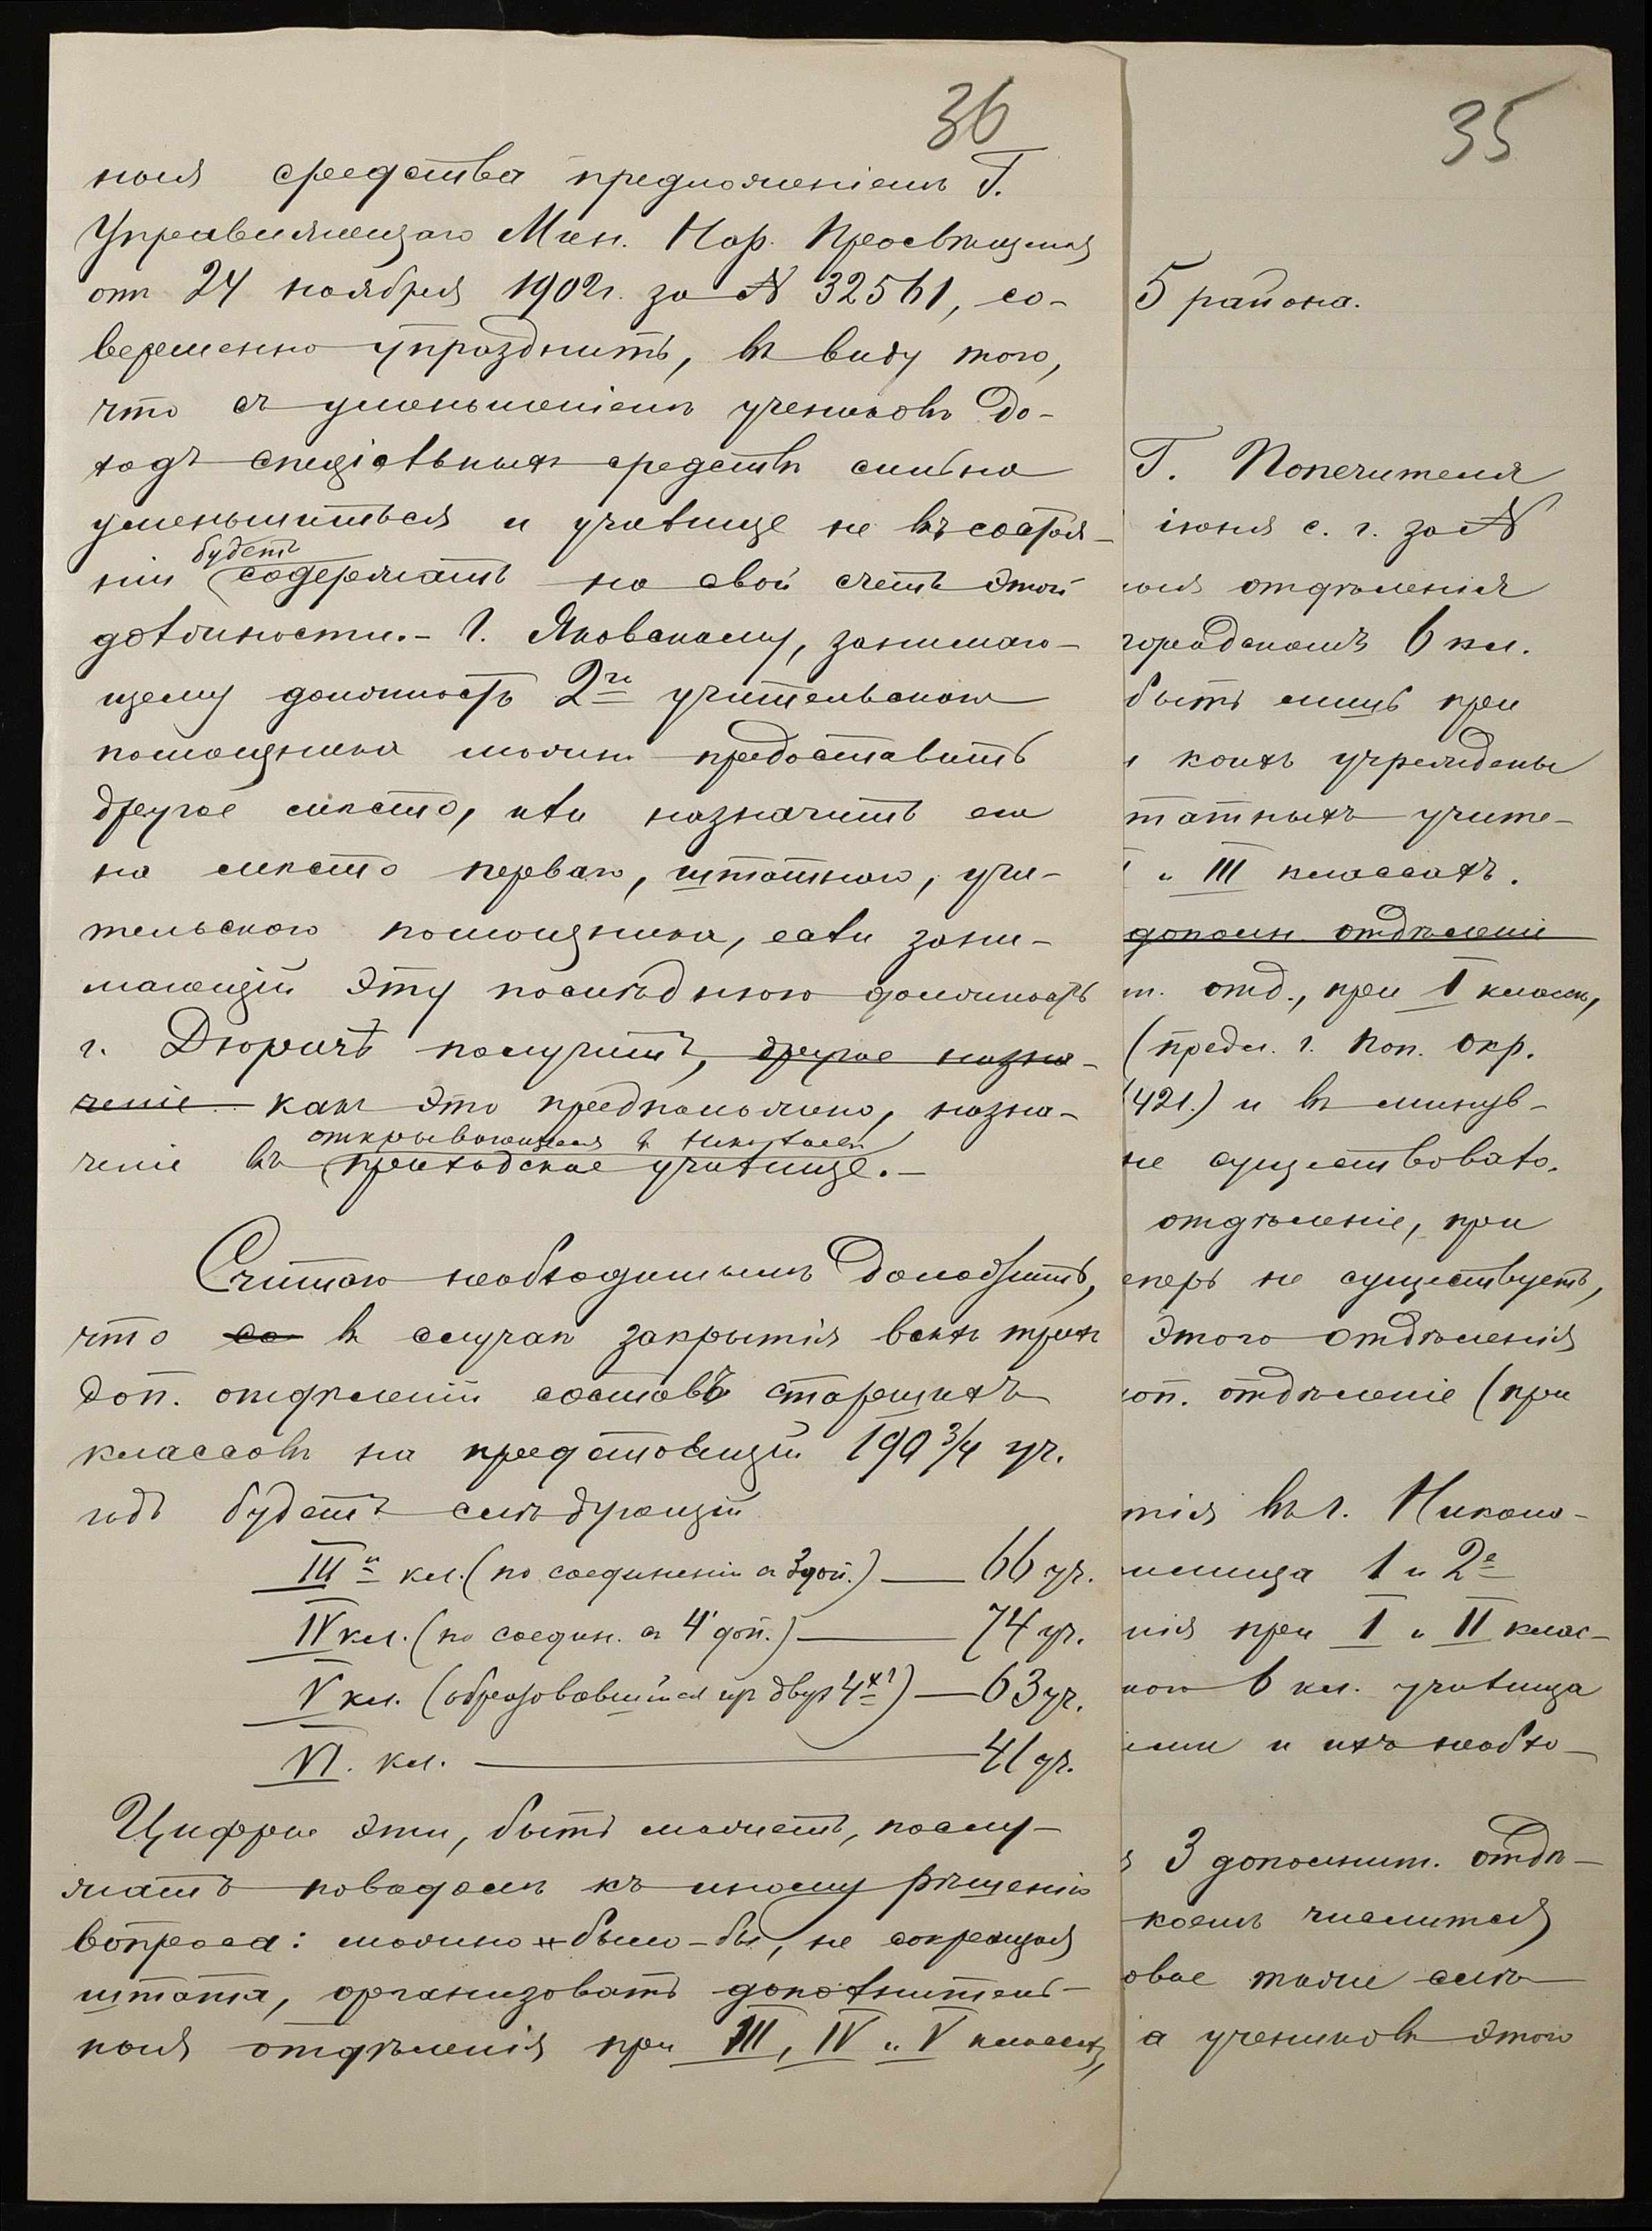 36
ныя средства предложеніемъ Г.
Управляющаго Мин. Нар. Просвѣщенія
отъ 24 ноября 1902г. за № 32561, со-
вершенно упразднить, въ виду того,
что съ уменьшеніемъ учениковъ до-
ходъ спеціальныхъ средствъ сильно
уменьшиться и училище не въ состоя-
будетъ
ніи содержать на свой счетъ этой
должности.- Г. Яновскому, занимаю-
щему должность 2го учительскаго
помощника можно предоставить
другое мѣсто, или назначить его
на мѣсто перваго, штатнаго, учи-
тельскаго помощника, если зани-
мающій эту послѣднюю должность
г. Дюричъ получитъ, другое назна-
ченіе какъ это предположено, назна-
открывающееся въ Николаевѣ
ченіе въ приходское училище.-
Считаю необходимымъ доложить,
что со въ случаѣ закрытія всѣхъ трехъ
доп. отдѣленій составъ старшихъ
классовъ на предстоящій 190 3/4 уч.
годъ будетъ слѣдующій
IIIй кл. (по соединеніи съ 3 доп.) — 66 уч.
IV кл. (по соедин. съ 4 доп.) — 74 уч.
V кл. (образовавшійся изъ двухъ 4хъ) — 63 уч.
VI. кл. — 41 уч.
Цифры эти, быть можетъ, послу-
жатъ поводомъ къ иному рѣшенію
вопроса: можно было-бы, не сокращая
штата, организовать дополнитель-
ныя отдѣленія при III, IV и V классахъ,
35
5 района.
Г. Попечителя
іюня с. г. за №
ныя отдѣленія
городскомъ 6 кл.
быть лишь при
и коихъ учреждены
татныхъ учите-
и III классахъ.
дополн. отдѣленіе
п. отд., при I классѣ,
(предл. г. Поп. Окр.
421.) и въ минув-
не существовало.
отдѣленіе, при
еперь не существуетъ,
этого отдѣленія
оп. отдѣленіе (при
тія въ г. Никола-
илища 1 и 2е
нія при I и II клас-
наго 6 кл. училища
ими и ихъ необхо-
3 дополнит. отдѣ-
коемъ числится
овое также слѣ-
а учениковъ этого